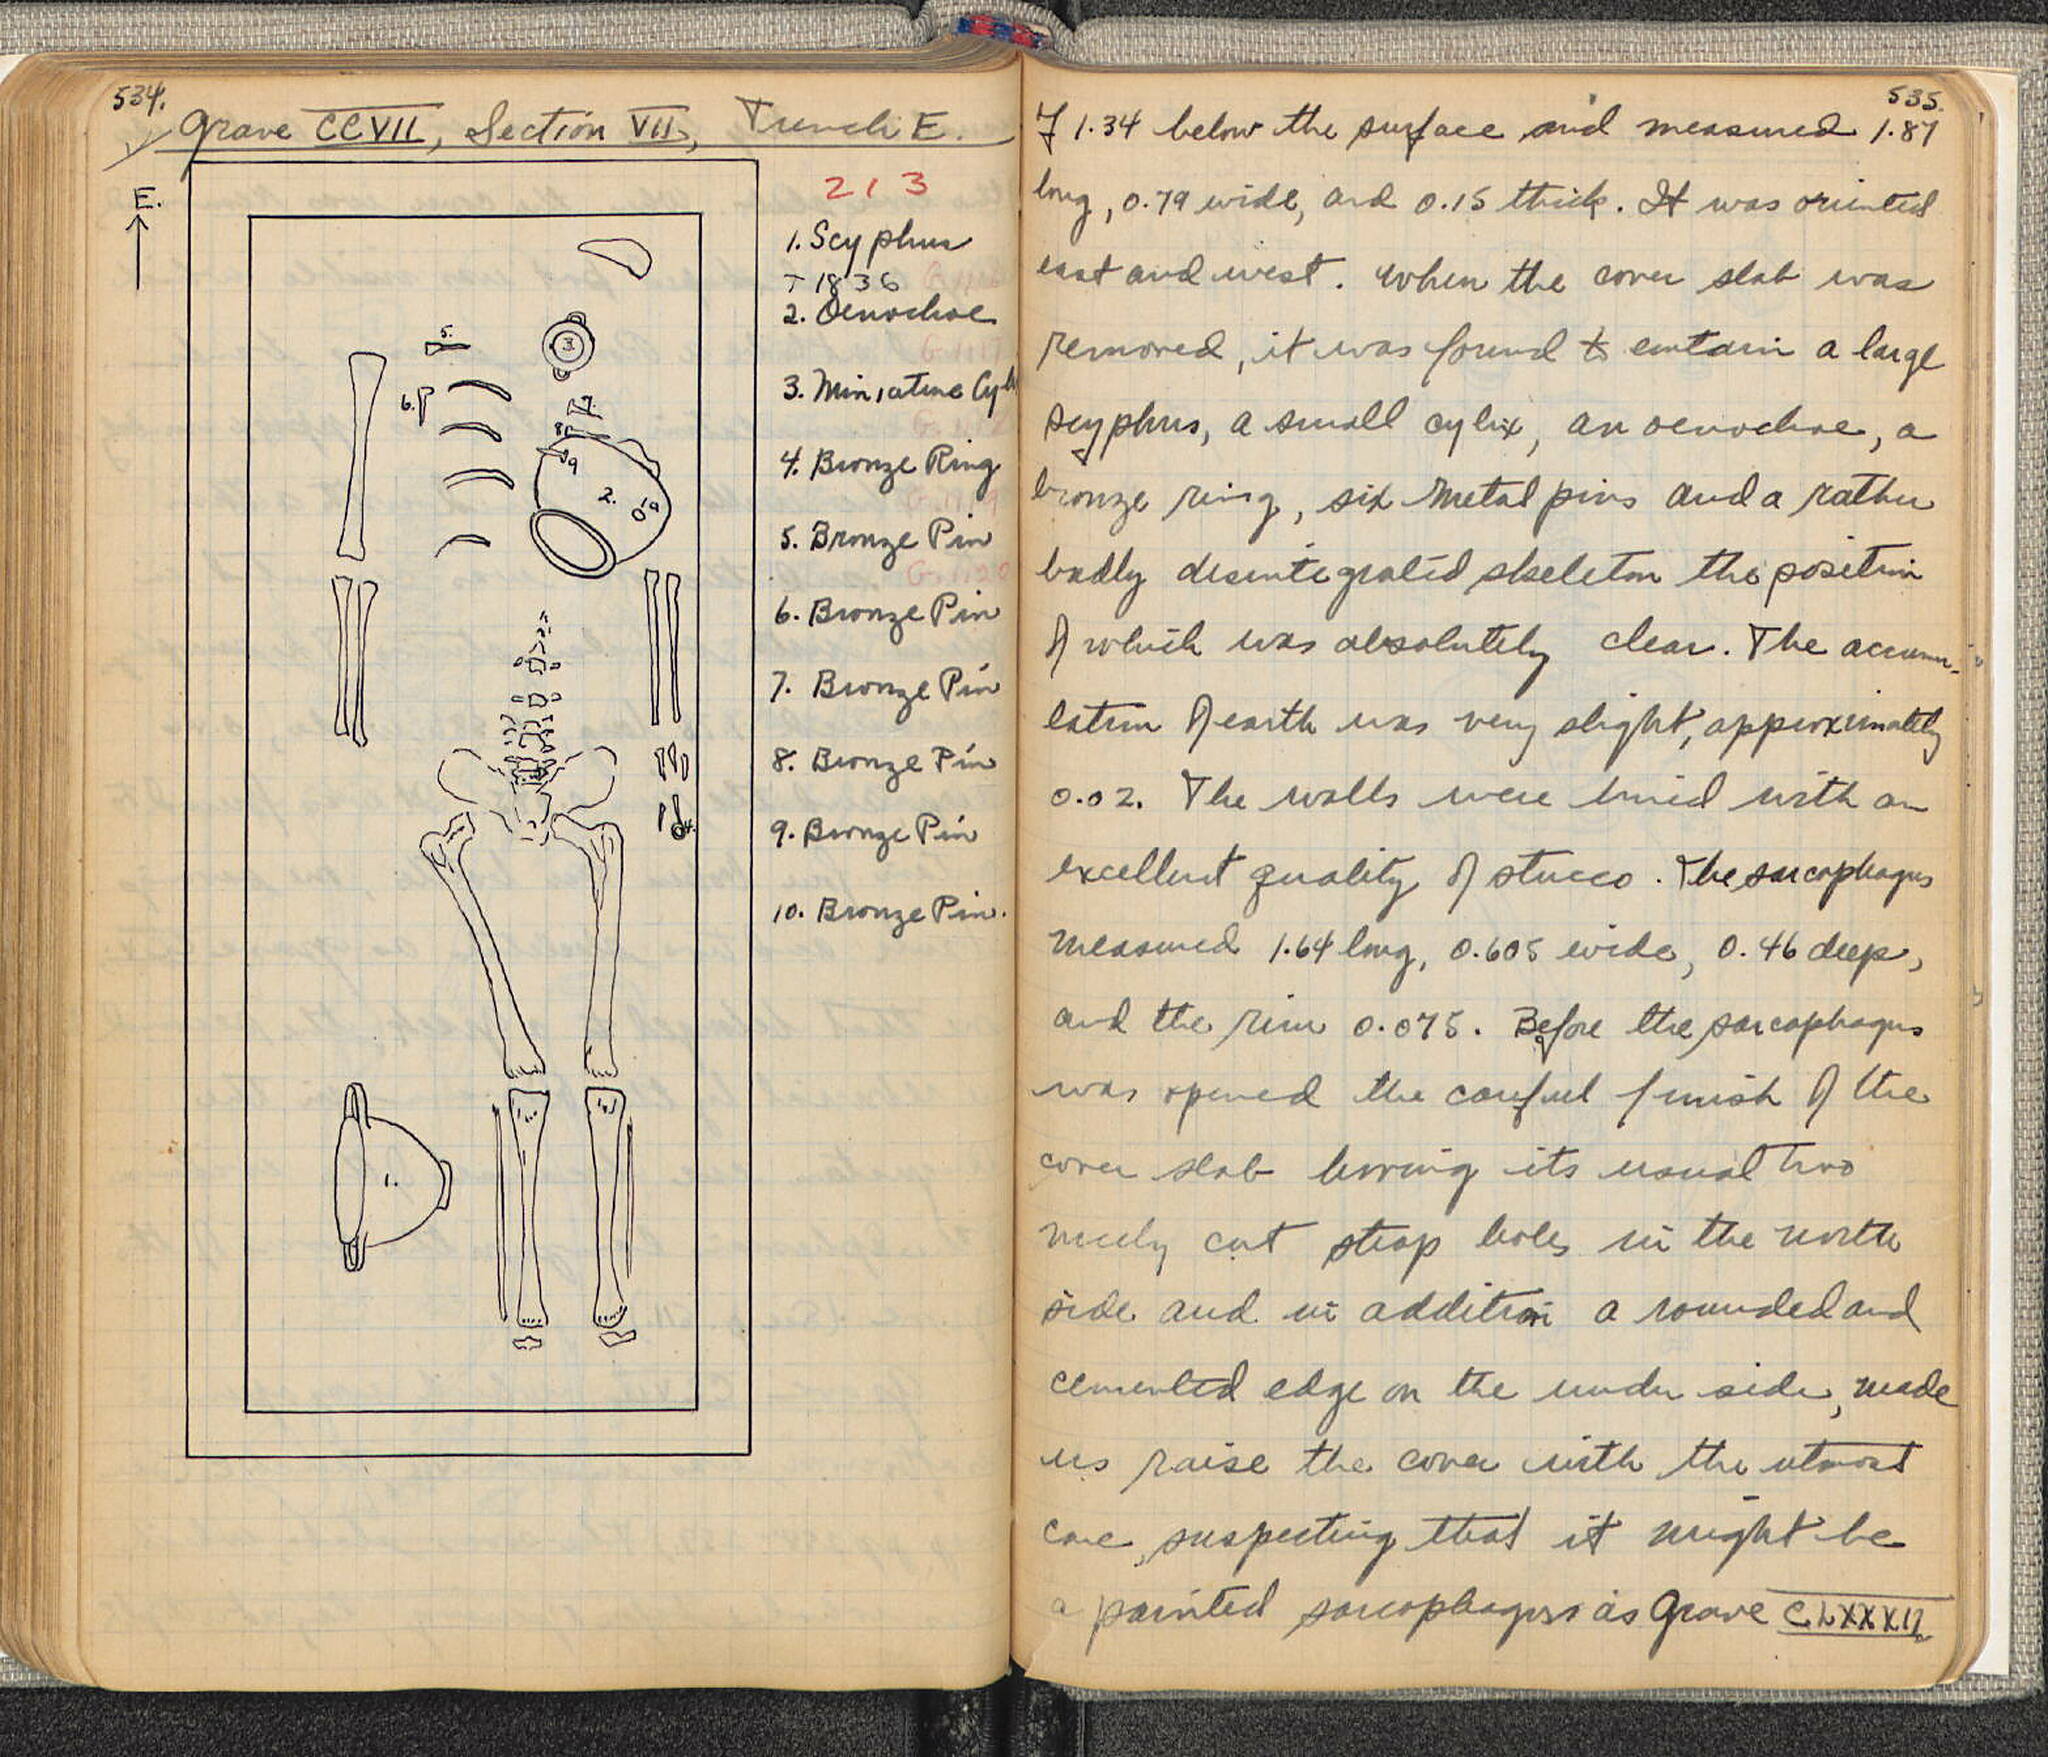 534.
Grave CCVII, Section VII, Trench E.
E.
213
1. Scyphus
T 1836
2. Oenochoe
3. Miniature Cyli
4. Bronze Ring
5. Bronze Pin
6. Bronze Pin
7. Bronze Pin
8. Bronze Pin
9. Bronze Pin
10. Bronze Pin.
5.
3.
6.
7.
8
9
2.
10
4.
1.
535.
of 1.34 below the surface and measured 1.87
long, 0.79 wide, and 0.15 thick. It was oriented
east and west. When the cover slab was
removed, it was found to contain a large
scyphus, a small cylix, an oenochoe, a
bronze ring, six metal pins and a rather
badly disintegrated skeleton the position
of which was absolutely clear. The accumu-
lation of earth was very slight, approximately
0.02. The walls were lined with an
excellent quality of stucco. The sarcophagus
measured 1.64 long, 0.605 wide, 0.46 deep,
and the rim 0.075. Before the sarcophagus
was opened the careful finish of the
cover slab having its usual two
nicely cut strap holes in the north
side and in addition a rounded and
cemented edge on the under side, made
us raise the cover with the utmost
care, suspecting that it might be
a painted sarcophagus as Grave CLXXXII